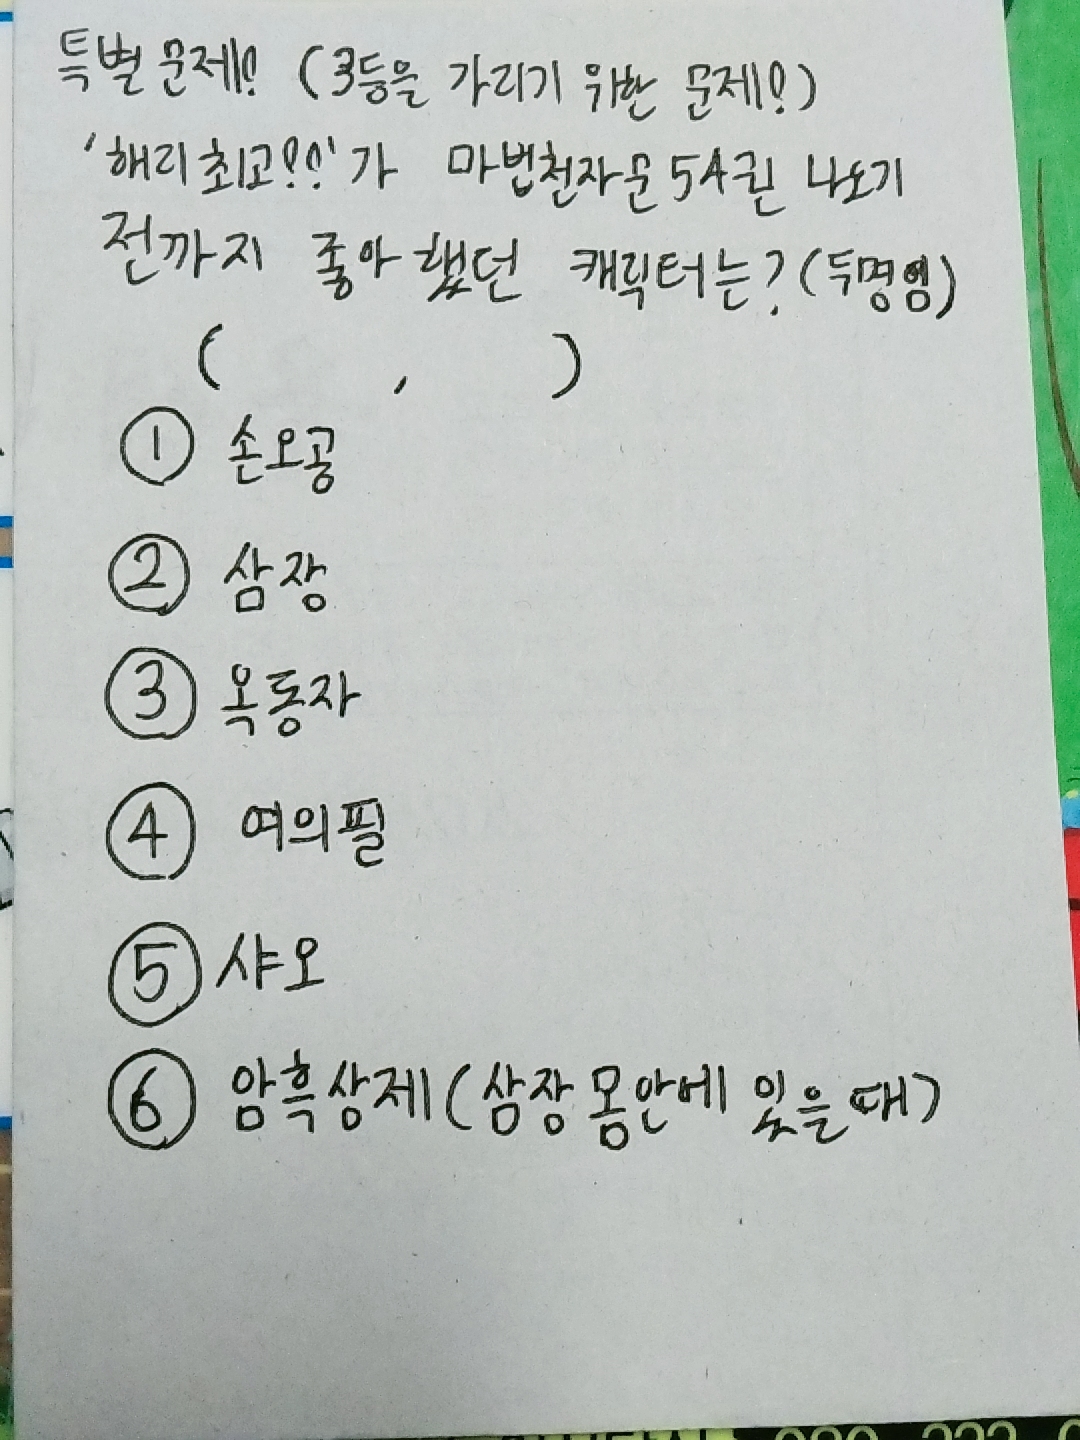 특별 문제! (3등을 가리기 위한 문제!)
'해리최고!!'가 마법천자문 54권 나오기
전까지 좋아했던 캐릭터는? (두명임)
( , )
① 손오공
② 삼장
③ 옥동자
④ 여의필
⑤ 샤오
⑥ 암흑상제(삼장 몸안에 있을때)